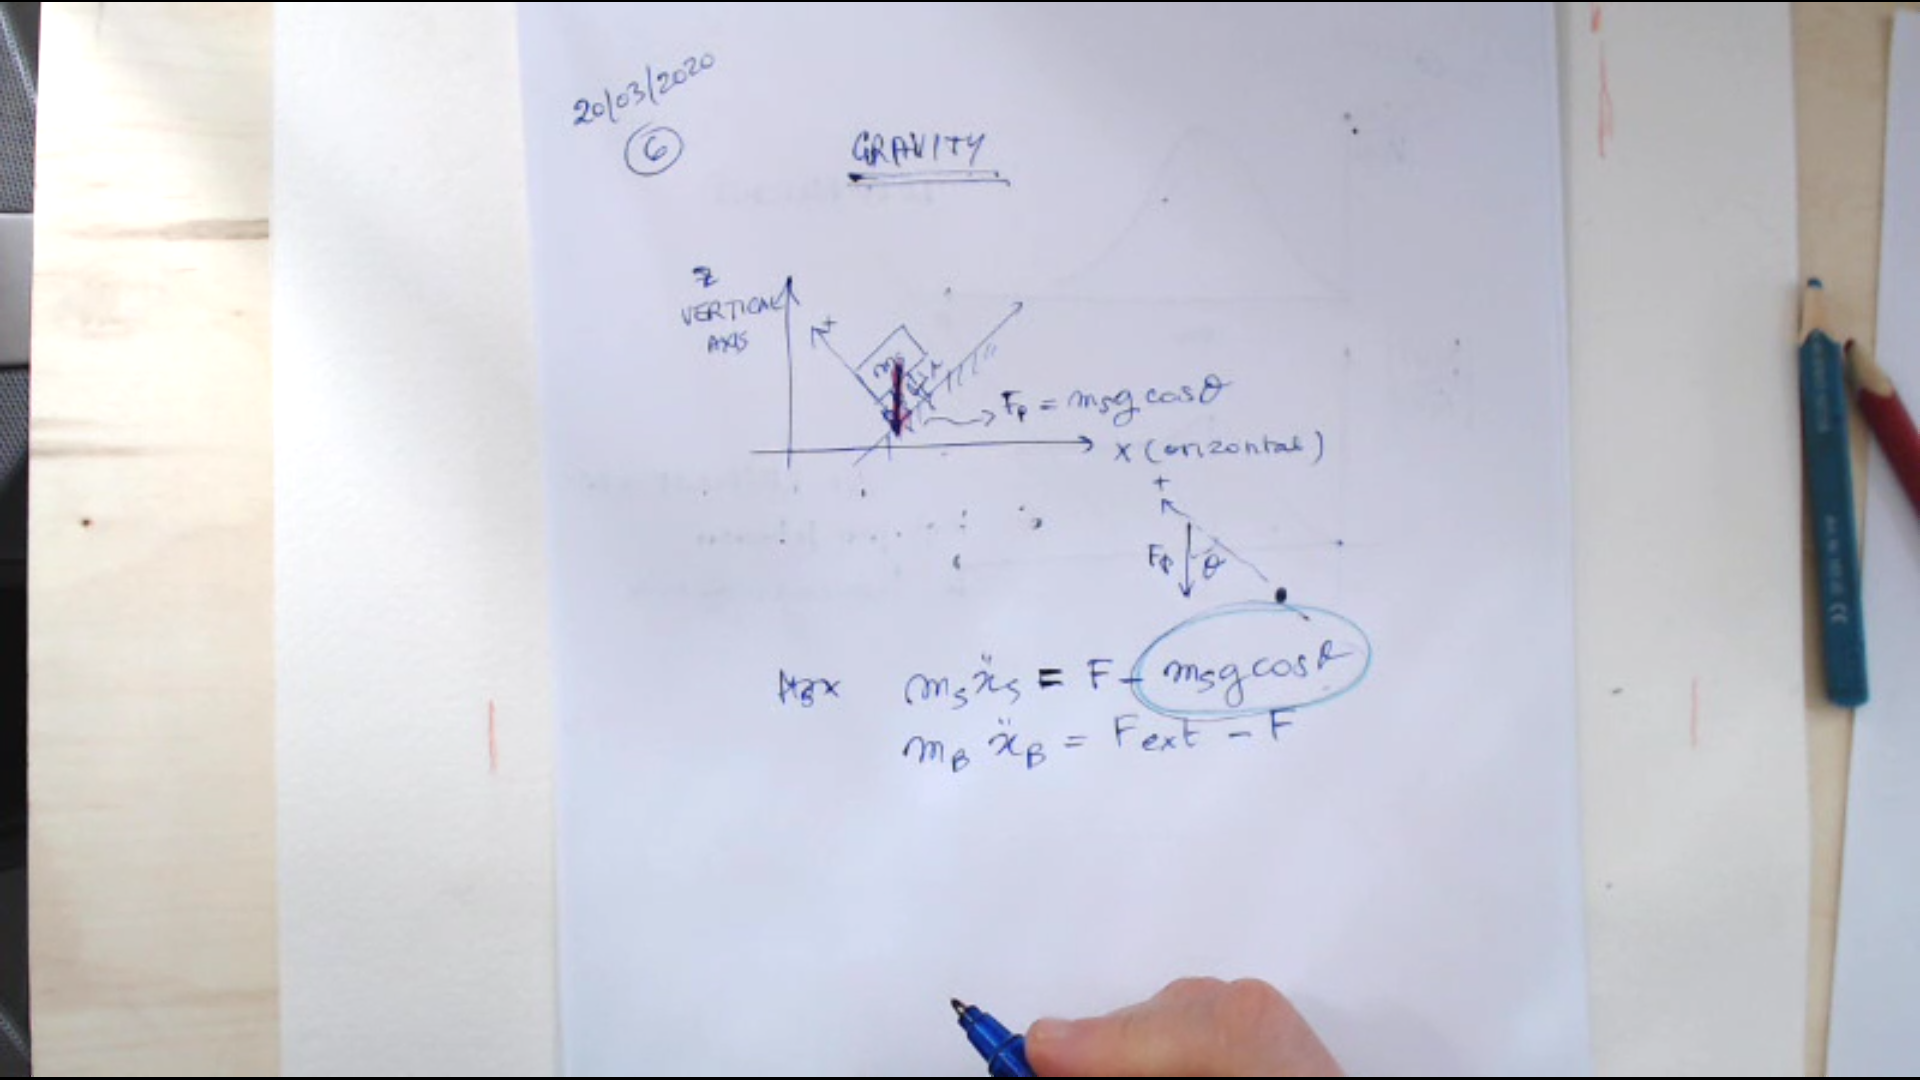 20/03/2020
6
GRAVITY
Z
VERTICAL
AXIS
+
ms
Fp = msg cosθ
x (orizontal)
+
Fp θ
msẍs = F - msg cosθ
mB ẍB = Fext - F